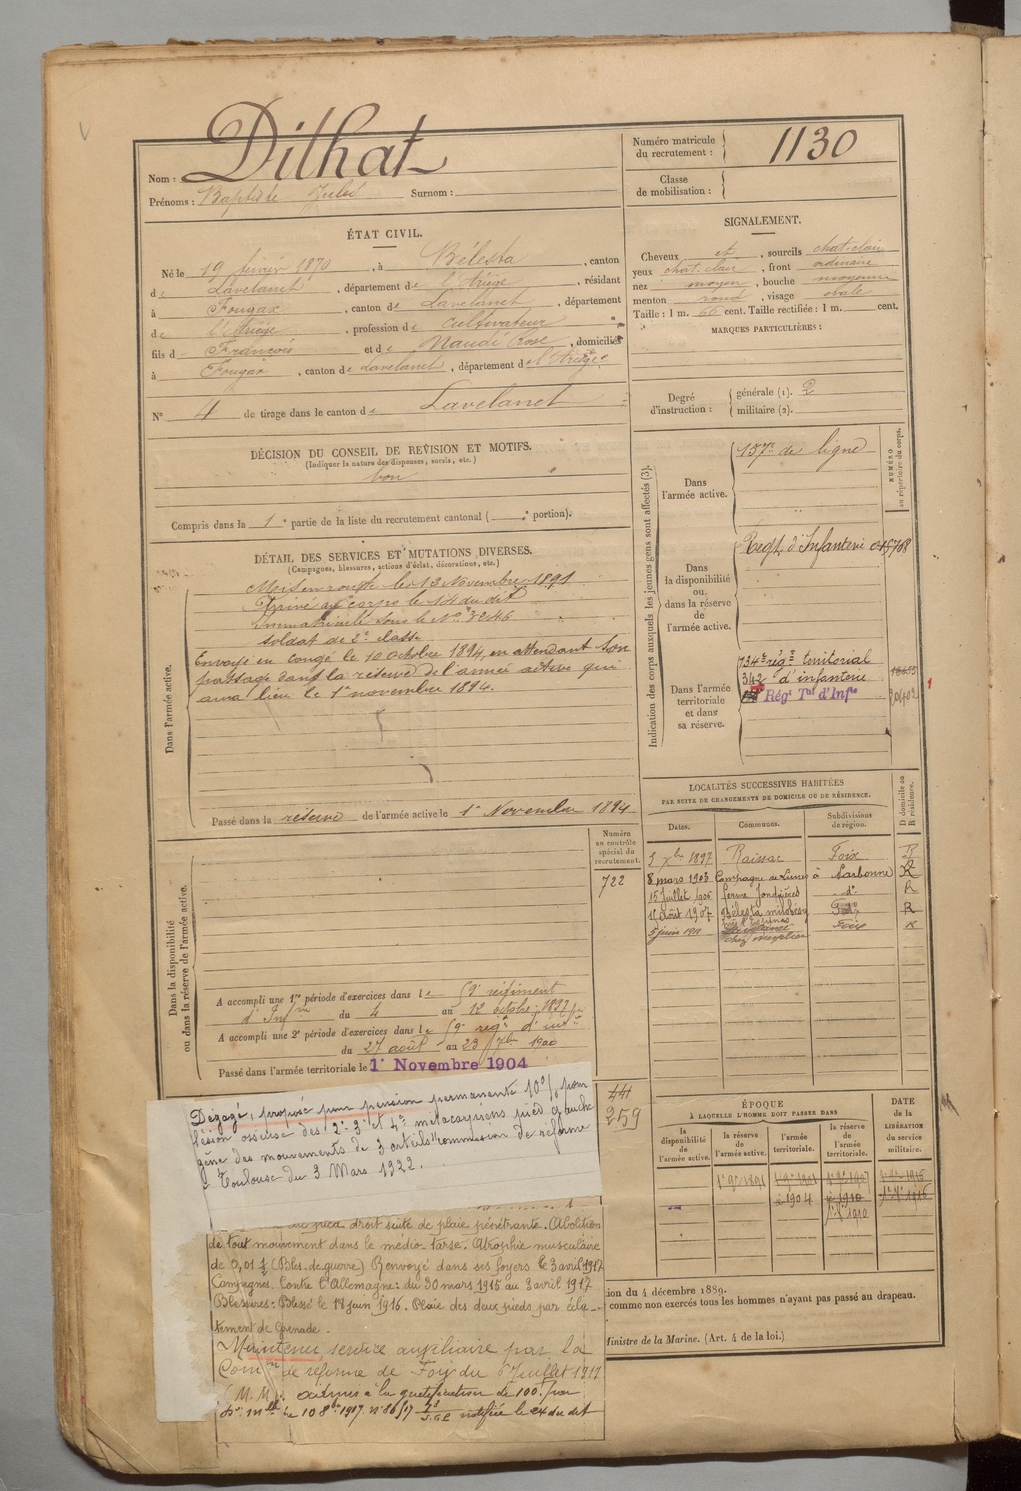 Nom : Dilhat
Prénoms : Baptiste Jules Surnom :
Numéro matricule
du recrutement : 1130
Classe
de mobilisation :
ÉTAT CIVIL.
Né le 19 février 1870, à Bélesta, canton
de Lavelanet, département de l'Ariège, résidant
à Fougax, canton de Lavelanet, département
de l'Ariège, profession de cultivateur
fils de François et de Naudi Rose, domiciliés
à Fougax, canton de Lavelanet, département de l'Ariège.
N° 4 de tirage dans le canton de Lavelanet
SIGNALEMENT.
Cheveux et, sourcils chat-clair
yeux chat. clair, front ordinaire
nez moyen, bouche moyenne
menton rond, visage ovale
Taille : 1 m. 66 cent. Taille rectifiée : 1 m. cent.
MARQUES PARTICULIÈRES :
Degré
d'instruction : générale (1). 2
militaire (2).
DÉCISION DU CONSEIL DE REVISION ET MOTIFS.
(Indiquer la nature des dispenses, sursis, etc.)
bon
Compris dans la 1e partie de la liste du recrutement cantonal ( e portion).
DÉTAIL DES SERVICES ET MUTATIONS DIVERSES.
(Campagnes, blessures, actions d'éclat, décorations, etc.)
Dans l'armée active.
Mis en route le 13 Novembre 1891
Arrivé au corps le 14 du dit
Immatriculé sous le No 3246
soldat de 2e classe
Envoyé en congé le 10 Octobre 1894, en attendant son
passage dans la réserve de l'armée active qui
aura lieu le 1er novembre 1894.
Passé dans la réserve de l'armée active le 1er Novembre 1894
Indication des corps auxquels les jeunes gens sont affectés (3).
NUMÉRO
au répertoire du corps.
Dans
l'armée active.
157e de ligne
Dans
la disponibilité
ou
dans la réserve
de
l'armée active.
Regt d'Infanterie
Dans l'armée
territoriale
et dans
sa réserve.
134e régt territorial
342 d'infanterie
Régt Tal d'Infie
20402
LOCALITÉS SUCCESSIVES HABITÉES
PAR SUITE DE CHANGEMENTS DE DOMICILE OU DE RÉSIDENCE.
Dates. Communes. Subdivisions
de région. D domicile ou
R résidence.
Raissac Foix R
8 mars 1903 Narbonne R
15 Juillet 1906 ferme d° R
Août 1907 Bélesta R
5 juin 1911 Foix
Numéro
au contrôle
spécial du
recrutement.
722
Dans la disponibilité
ou dans la réserve de l'armée active.
A accompli une 1re période d'exercices dans le 59e régiment
d'Infrie du 4 au 12 octobre 1897
A accompli une 2e période d'exercices dans le 59e regt d'inf
du 27 août au 23 7bre 1900
Passé dans l'armée territoriale le 1er Novembre 1904
441
259
Dégagé, proposé pour pension permanente 10% pour
lésion osseuse des 2e 3e et 4e métacarpiens pied gauche
gêne des mouvements de 3 orteils commission de réforme
Toulouse du 3 Mars 1922.
du pied droit suite de plaie pénétrante. Abolition
de tout mouvement dans le médio-tarse. Atrophie musculaire
de 0,01 ½ (Bles. de guerre) Renvoyé dans ses foyers le 3 avril 1917
Campagnes. Contre l'Allemagne : du 30 mars 1915 au 3 avril 1917
Blessures : Blessé le 14 juin 1916. Plaie des deux pieds par écla-
tement de grenade.
Maintenu service auxiliaire par la
Comon de réforme de Foix du 6 Juillet 1917
(M. M.) admis à la gratification de 100f par
Don mlle du 10 8bre 1917 notifiée le 24 du dit
ÉPOQUE
À LAQUELLE L'HOMME DOIT PASSER DANS
DATE
de la
LIBÉRATION
du service
militaire.
la
disponibilité
de
l'armée active.
la réserve
de
l'armée active.
l'armée
territoriale.
la réserve
de
l'armée
territoriale.
1904 1910
tion du 4 décembre 1889.
comme non exercés tous les hommes n'ayant pas passé au drapeau.
Ministre de la Marine. (Art. 4 de la loi.)